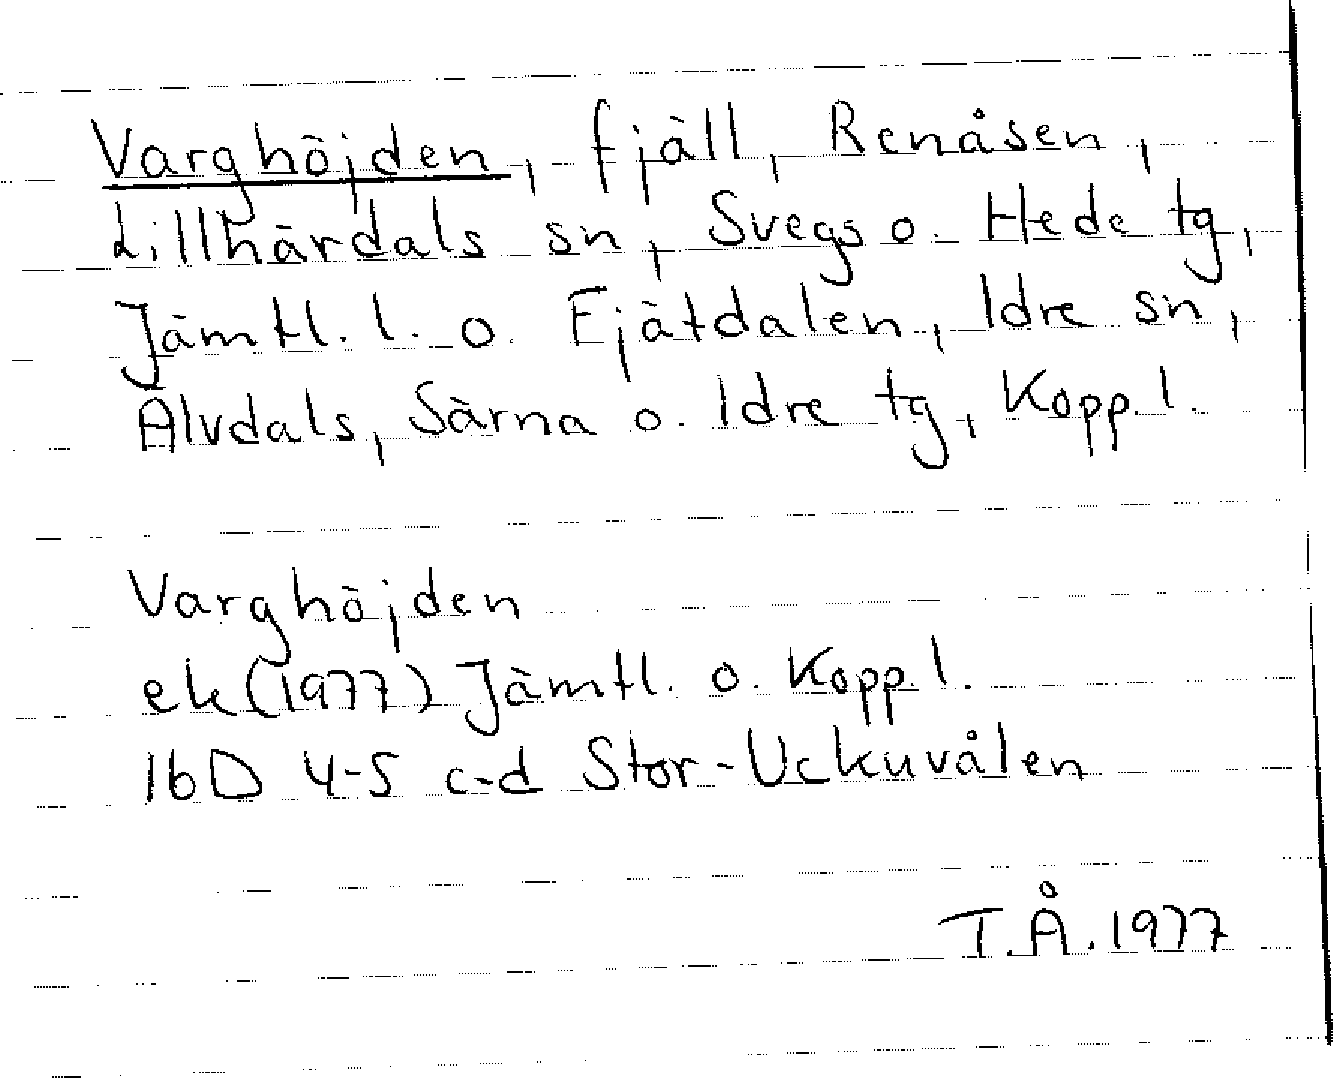 Varghöjden, fjäll, Renåsen,
Lillhärdals sn, Svegs o. Hede tg,
Jämtl. l. o. Fjätdalen, Idre sn,
Älvdals, Särna o. Idre tg, Kopp. l.
Varghöjden
ek (1977) Jämtl. o. Kopp. l.
16D 4-5 c-d Stor-Uckuvålen
T.Å. 1977